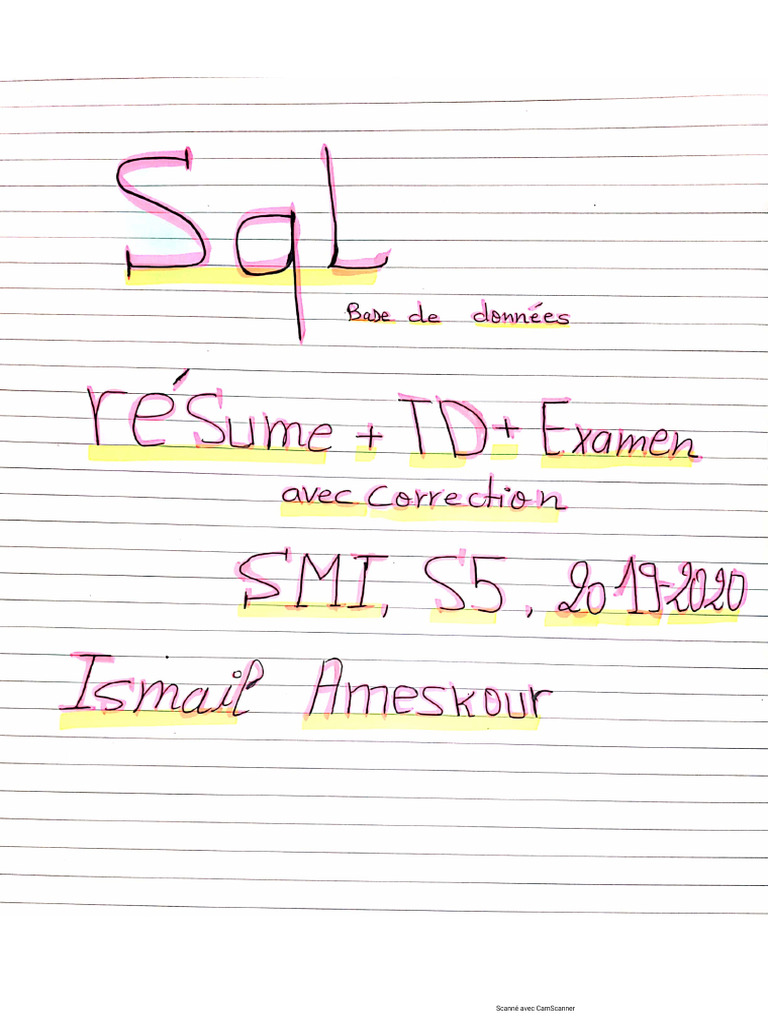 SqL
Base de données
résume + TD + Examen
avec correction
SMI, S5, 2019-2020
Ismail Ameskour
Scanné avec CamScanner